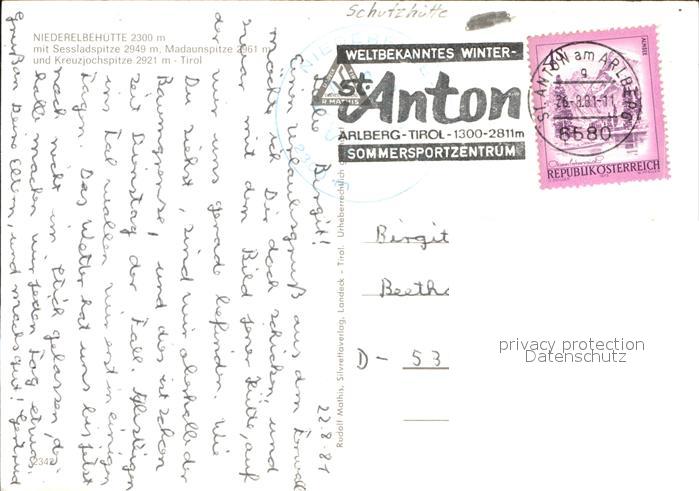 Schutzhütte
NIEDERELBEHÜTTE 2300 m
mit Sessladspitze 2949 m, Madaunspitze 2961 m
und Kreuzjochspitze 2921 m - Tirol
WELTBEKANNTES WINTER-
St. Anton
ARLBERG-TIROL-1300-2811m
SOMMERSPORTZENTRUM
R. MATHIS
ST. ANTON am ARLBERG
26.8.81-11
6580
REPUBLIK ÖSTERREICH
22.8.81
Liebe Birgit!
Einen Urlaubsgruß aus dem Ferwall
möchte ich Dir doch schicken, und
zwar mit dem Bild jener Hütte, auf
der wir uns gerade befinden. Wie
Du siehst, sind wir oberhalb der
Baumgrenze! und das ist schon
seit Dienstag der Fall. Absteigen
ins Tal wollen wir erst in einigen
Tagen. Das Wetter hat uns bis jetzt
noch nicht im Stich gelassen, des-
halb machen wir jeden Tag etwas.
Grüßen Deine Eltern, und machs gut! Gertrud
Rudolf Mathis, Silvrettaverlag, Landeck - Tirol. Urheberrechtlich
Birgit
Beeth
D - 53
privacy protection
Datenschutz
2342